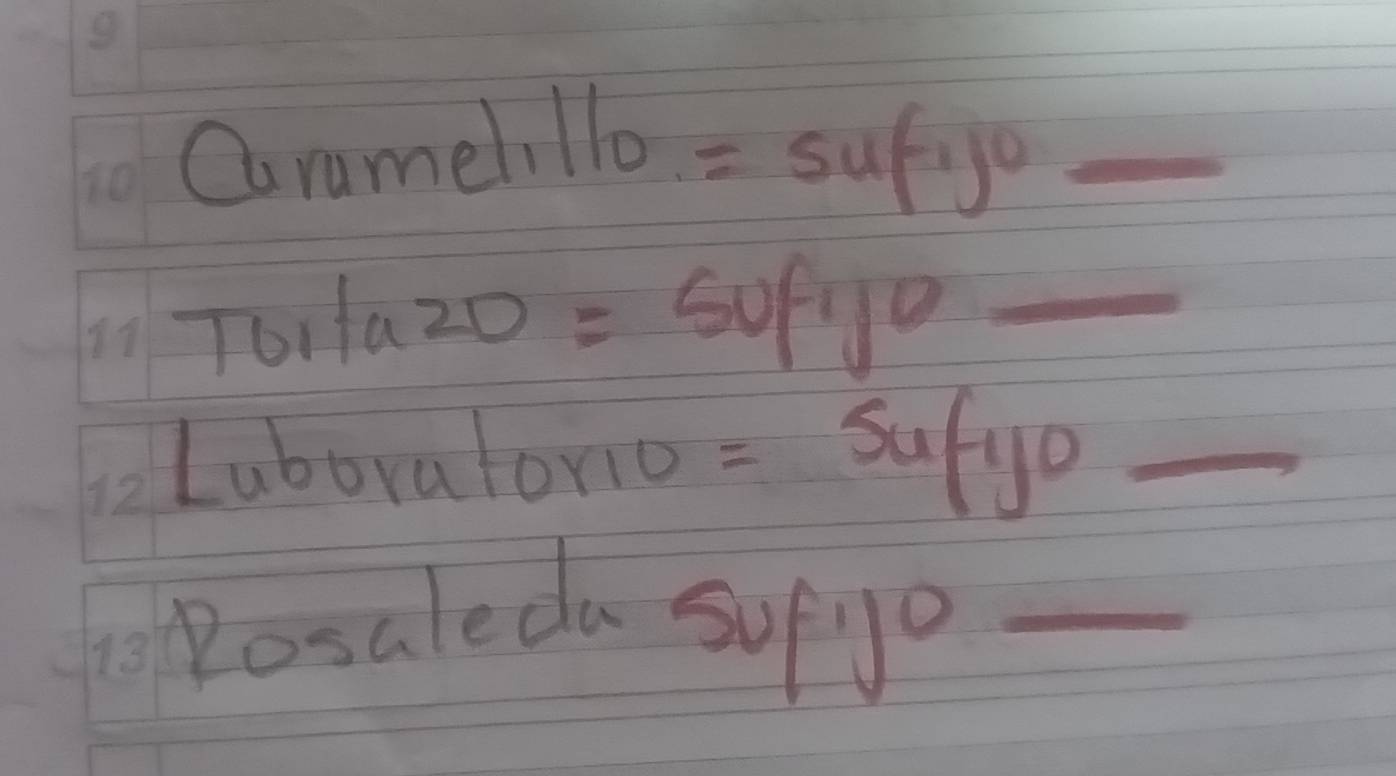 9
10 Caramelillo. = sufijo —
11 Tortazo = sufijo —
12 Laboratorio = sufijo —
13 Rosaleda sufijo —